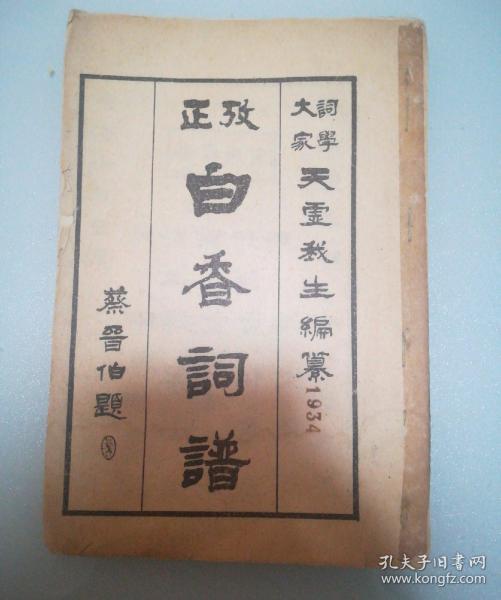 詞學大家
天虛我生編纂
1934
攷正
白香詞譜
蔡晉伯題
孔夫子旧书网
www.kongfz.com